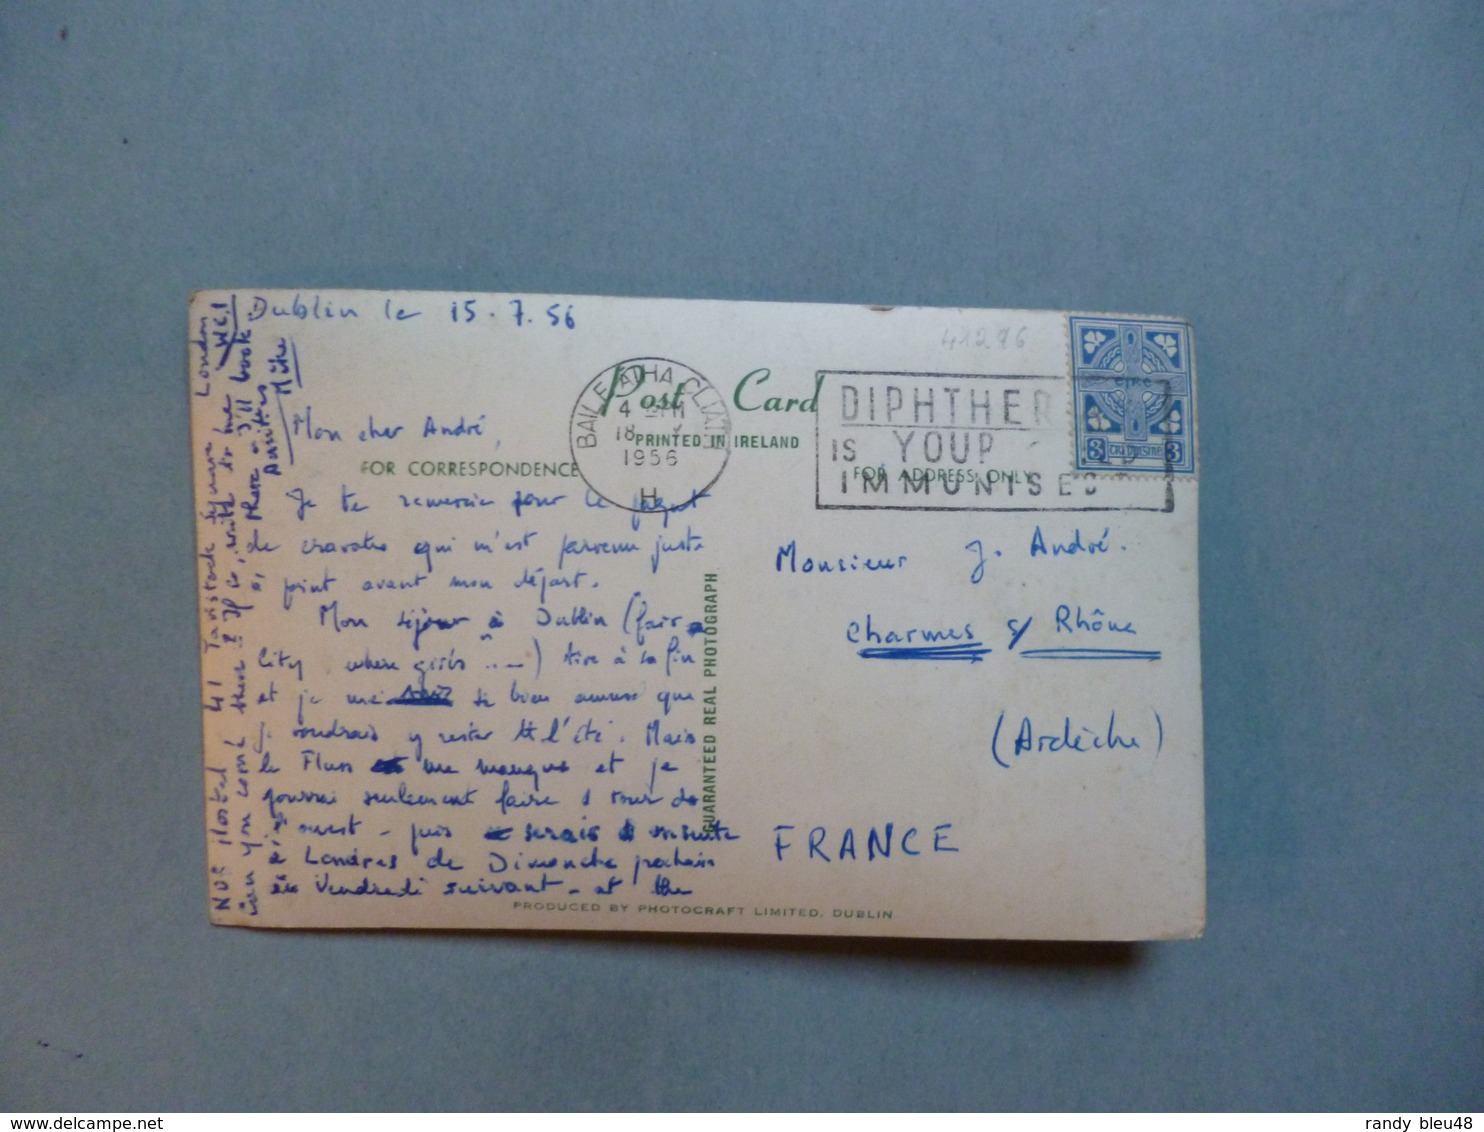 Dublin le 15.7.56
41276
Post Card
PRINTED IN IRELAND
FOR CORRESPONDENCE
FOR ADDRESS ONLY
BAILE ÁTHA CLIATH
4 PM
18
1956
H
DIPHTHER
IS YOUR
IMMUNISED
3 3
Mon cher André,
Je te remercie pour le paquet
de cravates qui m'est parvenu juste
point avant mon départ.
Mon séjour à Dublin (fair
City where girls ..—) tire à sa fin
et je me si bien amusé que
je voudrais y rester tt l'été. Mais
le me manque et je
pourrai seulement faire 1 tour de
l'ouest - puis serais ensuite
à Londres de Dimanche prochain
au Vendredi suivant - at the
NUS Hostel 41 Tavistock Square London W.C.1
Can you come there? If so, write to me
at, de Mare & I'll book.
Amitiés
Mike
Monsieur J. André.
Charmes s/ Rhône
(Ardèche)
FRANCE
GUARANTEED REAL PHOTOGRAPH
PRODUCED BY PHOTOCRAFT LIMITED, DUBLIN
randy bleu48